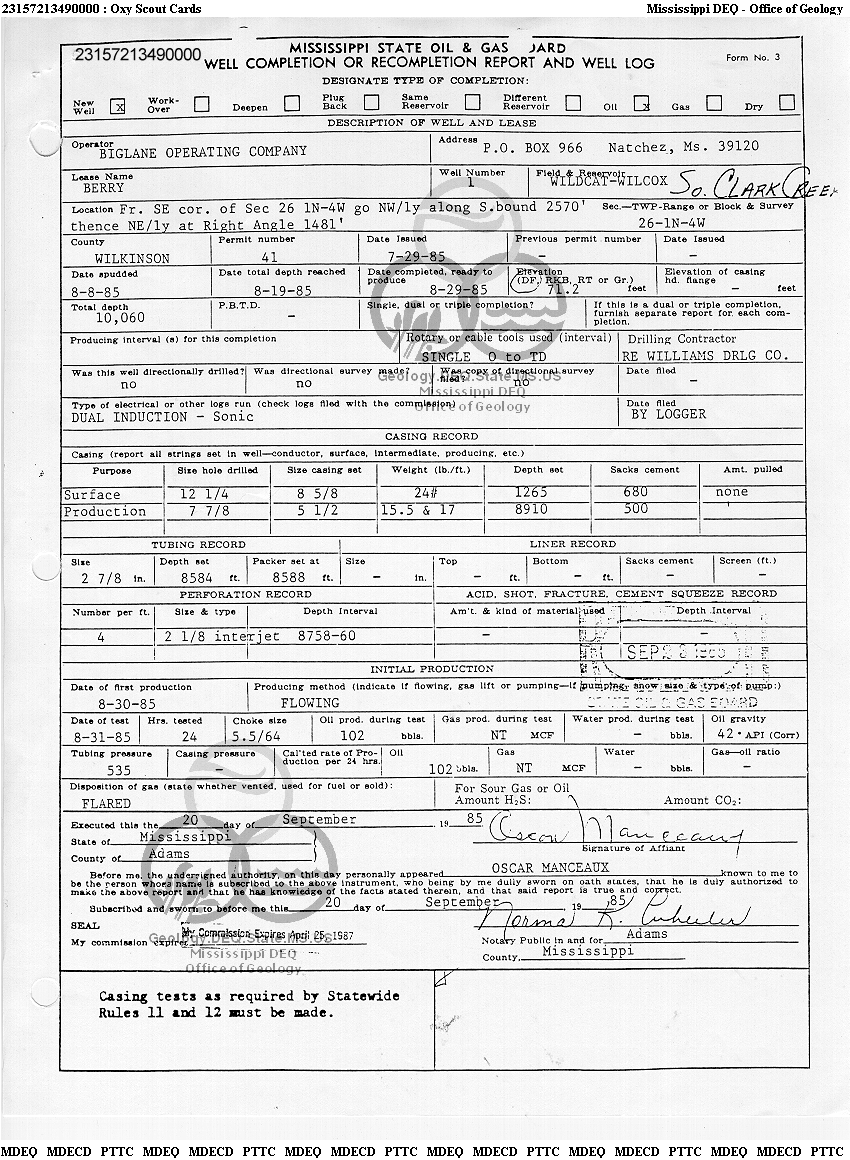 23157213490000 : Oxy Scout Cards Mississippi DEQ - Office of Geology
23157213490000
MISSISSIPPI STATE OIL & GAS OARD
WELL COMPLETION OR RECOMPLETION REPORT AND WELL LOG Form No. 3
DESIGNATE TYPE OF COMPLETION:
New Well X Work-Over Deepen Plug Back Same Reservoir Different Reservoir Oil X Gas Dry
DESCRIPTION OF WELL AND LEASE
Operator Address
BIGLANE OPERATING COMPANY P.O. BOX 966 Natchez, Ms. 39120
Lease Name Well Number Field & Reservoir
BERRY 1 WILDCAT-WILCOX So. CLARK CREEK
Location Fr. SE cor. of Sec 26 1N-4W go NW/ly along S.bound 2570' Sec.—TWP-Range or Block & Survey
thence NE/ly at Right Angle 1481' 26-1N-4W
County Permit number Date Issued Previous permit number Date Issued
WILKINSON 41 7-29-85 - -
Date spudded Date total depth reached Date completed, ready to produce Elevation (DF, RKB, RT or Gr.) Elevation of casing hd. flange
8-8-85 8-19-85 8-29-85 71.2 feet - feet
Total depth P.B.T.D. Single, dual or triple completion? If this is a dual or triple completion, furnish separate report for each completion.
10,060 -
Producing interval (s) for this completion Rotary or cable tools used (interval) Drilling Contractor
SINGLE O to TD RE WILLIAMS DRLG CO.
Was this well directionally drilled? Was directional survey made? Was copy of directional survey filed? Date filed
no no no -
Geology.DEQ.State.MS.US
Mississippi DEQ
Office of Geology
Type of electrical or other logs run (check logs filed with the commission) Date filed
DUAL INDUCTION - Sonic BY LOGGER
CASING RECORD
Casing (report all strings set in well—conductor, surface, intermediate, producing, etc.)
Purpose Size hole drilled Size casing set Weight (lb./ft.) Depth set Sacks cement Amt. pulled
Surface 12 1/4 8 5/8 24# 1265 680 none
Production 7 7/8 5 1/2 15.5 & 17 8910 500
TUBING RECORD LINER RECORD
Size Depth set Packer set at Size Top Bottom Sacks cement Screen (ft.)
2 7/8 in. 8584 ft. 8588 ft. - in. - ft. - ft. - -
PERFORATION RECORD ACID, SHOT, FRACTURE, CEMENT SQUEEZE RECORD
Number per ft. Size & type Depth Interval Am't. & kind of material used Depth Interval
4 2 1/8 interjet 8758-60 - -
SEP
INITIAL PRODUCTION
Date of first production Producing method (indicate if flowing, gas lift or pumping—if pumping, show size & type of pump:)
8-30-85 FLOWING
STATE OIL & GAS BOARD
Date of test Hrs. tested Choke size Oil prod. during test Gas prod. during test Water prod. during test Oil gravity
8-31-85 24 5.5/64 102 bbls. NT MCF - bbls. 42 ° API (Corr)
Tubing pressure Casing pressure Cal'ted rate of Production per 24 hrs. Oil Gas Water Gas—oil ratio
535 - 102 bbls. NT MCF - bbls. -
Disposition of gas (state whether vented, used for fuel or sold): For Sour Gas or Oil
FLARED Amount H2S: Amount CO2:
Executed this the 20 day of September , 19 85 Oscar Manceaux
State of Mississippi Signature of Affiant
County of Adams
Before me, the undersigned authority, on this day personally appeared OSCAR MANCEAUX known to me to
be the person whose name is subscribed to the above instrument, who being by me dully sworn on oath states, that he is duly authorized to
make the above report and that he has knowledge of the facts stated therein, and that said report is true and correct.
Subscribed and sworn to before me this 20 day of September , 19 85
Norma R. Wheeler
SEAL
My commission expires My Commission Expires April 25, 1987 Notary Public in and for Adams
County, Mississippi
Geology.DEQ.State.MS.US
Mississippi DEQ
Office of Geology
Casing tests as required by Statewide
Rules 11 and 12 must be made.
MDEQ MDECD PTTC MDEQ MDECD PTTC MDEQ MDECD PTTC MDEQ MDECD PTTC MDEQ MDECD PTTC MDEQ MDECD PTTC